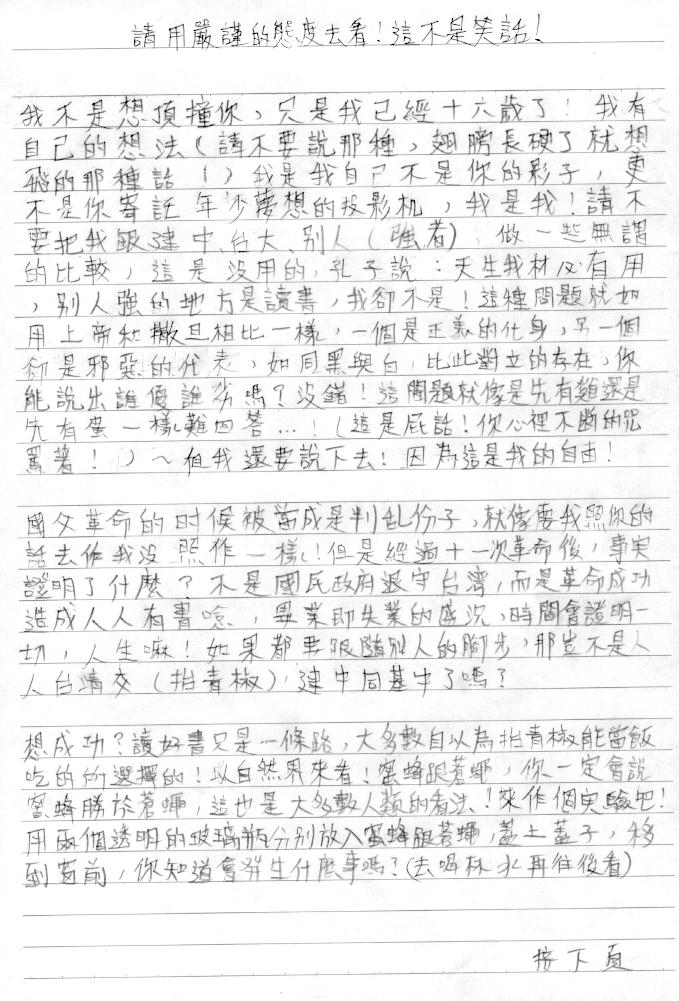 請用嚴謹的態度去看！這不是笑話！
我不是想頂撞你，只是我已經十六歲了！我有
自己的想法（請不要說那種，翅膀長硬了就想
飛的那種話！）我是我自己不是你的影子，更
不是你寄託年少夢想的投影机，我是我！請不
要把我跟建中、台大、別人（強者），做一些無謂
的比較，這是沒用的，孔子說：天生我材必有用
，別人強的地方是讀書，我卻不是！這種問題就如
用上帝和撒旦相比一樣，一個是正義的化身，另一個
卻是邪惡的代表，如同黑與白，比此對立的存在，你
能說出誰優誰劣嗎？沒錯！這問題就像是先有雞還是
先有蛋一樣難回答…！（這是屁話！你心裡不斷的咒
罵著！）～但我還要說下去！因為這是我的自由！
國父革命的时候被當成是判乱份子，就像要我照你的
話去作我沒照作一樣！但是經過十一次革命後，事实
證明了什麼？不是國民政府退守台灣，而是革命成功
造成人人有書唸，畢業即失業的盛況，時間會證明一
切，人生嘛！如果都要跟隨別人的腳步，那豈不是人
人台清交（抬青椒），建中同基中了嗎？
想成功？讀好書只是一條路，大多數自以為抬青椒能當飯
吃的所選擇的！以自然界來看！蜜蜂跟蒼蠅，你一定會說
蜜蜂勝於蒼蠅，這也是大多數人類的看法！來作個实驗吧！
用兩個透明的玻璃瓶分別放入蜜蜂跟蒼蠅，蓋上蓋子，移
到窗前，你知道會發生什麼事嗎？（去喝杯水再往後看）
接下頁